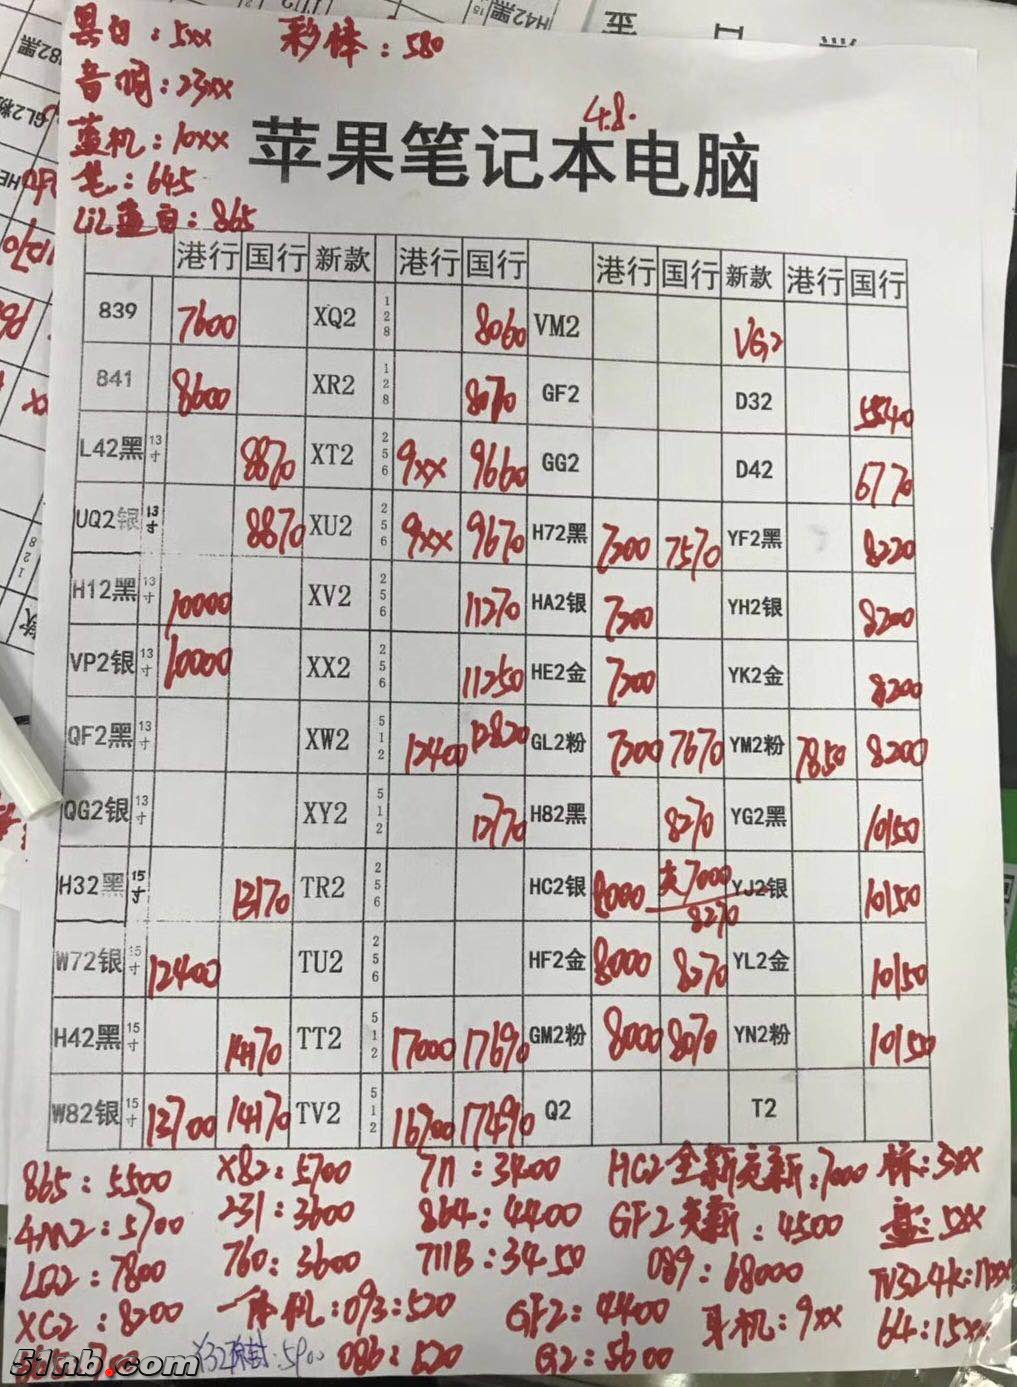 黑白：5xx 彩棒：580
音响：23xx
蓝机：10xx
笔：645
4.8.
苹果笔记本电脑
港行 国行 新款 港行 国行 港行 国行 新款 港行 国行
839 7600 XQ2 128 8060 VM2 VG2
841 8600 XR2 128 8070 GF2 D32 5540
L42黑 13寸 8870 XT2 256 9xx 9660 GG2 D42 6770
UQ2银 13寸 8870 XU2 256 9xx 9670 H72黑 7200 7570 YF2黑 8220
H12黑 13寸 10000 XV2 256 11270 HA2银 7200 YH2银 8200
VP2银 13寸 10000 XX2 256 11250 HE2金 7200 YK2金 8200
QF2黑 13寸 XW2 512 12400 12820 GL2粉 7200 7670 YM2粉 7850 8200
QG2银 13寸 XY2 512 12770 H82黑 8270 YG2黑 10150
H32黑 15寸 13170 TR2 256 HC2银 8000 充7000 8270 YJ2银 10150
W72银 15寸 12400 TU2 256 HF2金 8000 8270 YL2金 10150
H42黑 15寸 14170 TT2 512 17000 17690 GM2粉 8000 8070 YN2粉 10150
W82银 15寸 13700 14170 TV2 512 16700 17490 Q2 T2
865：5500 X82：5700 711：3400 HC2全新充新：7000
4M2：5700 231：3600 864：4400 GF2充新：4500 盒：5xx
LQ2：7800 760：3600 711B：3450 089：68000
XC2：8200 一体机：093：520 GF2：4400 耳机：9xx 64：15xx
51nb.com X32原封：5900 086：520 G2：5600